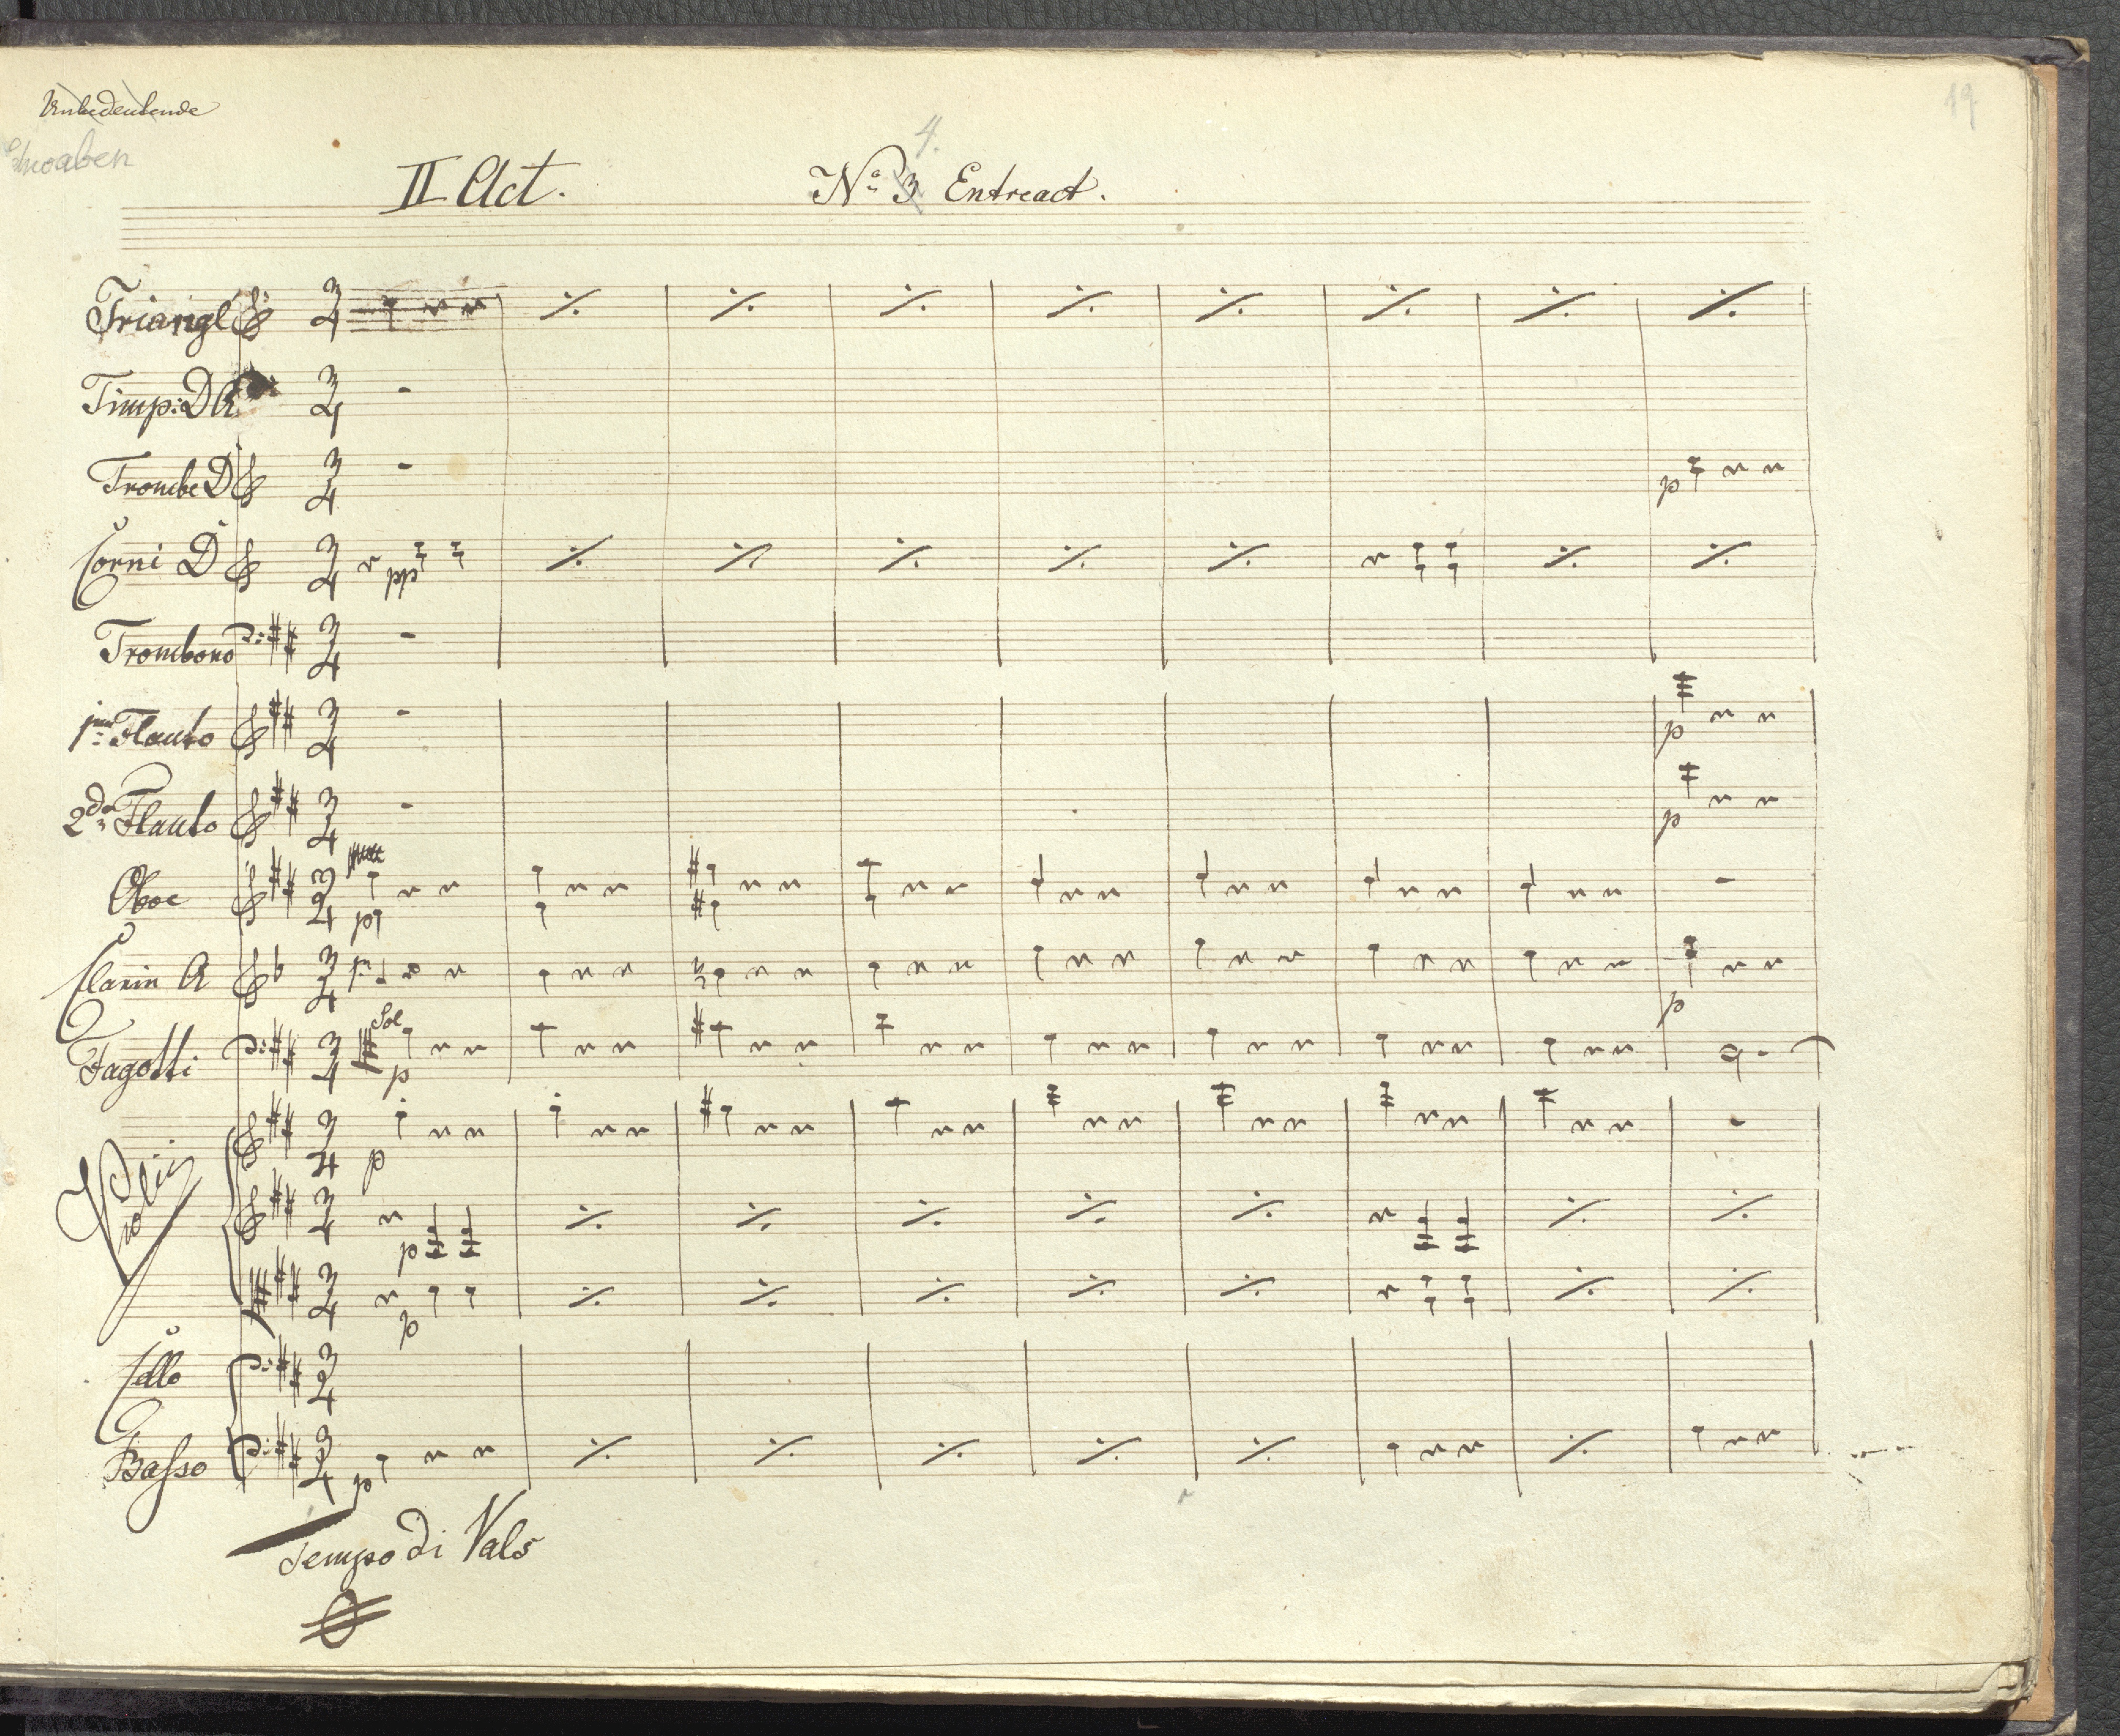 Unbedeutende
19
4.
II Act. No 3 Entreact.
Triangl
Timp: D A
Trombe D
Corni D
pp
Trombono
1mo Flauto
p
2do Flauto
p
Oboe
p
Clarin A
p
Sol
Fagotti
p
Violin
p
p
p
Cello
Basso
p
Tempo di Vals